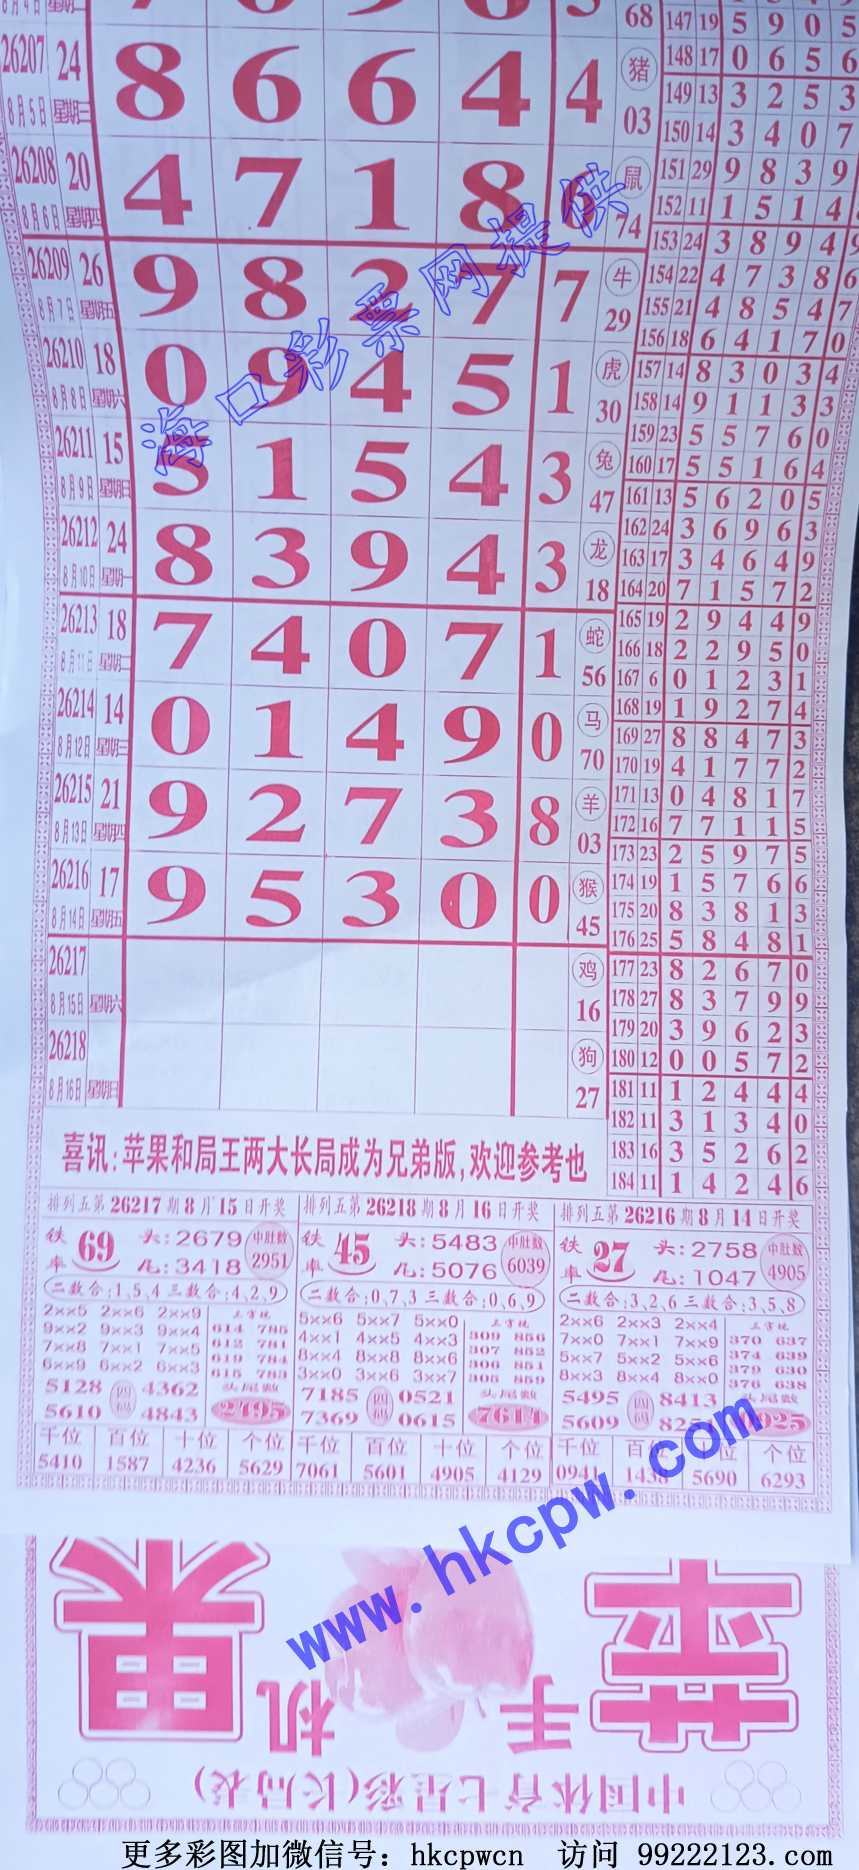 68 147 19 5 9 0 5
26207 24 8 6 6 4 4 猪 148 17 0 6 5 6
8月5日 星期三 03 149 13 3 2 5 3
150 14 3 4 0 7
26208 20 4 7 1 8 鼠 151 29 9 8 3 9
8月6日 星期四 74 152 11 1 5 1 4
153 24 3 8 9 4 9
26209 26 9 8 2 7 7 牛 154 22 4 7 3 8 6
8月7日 星期五 29 155 21 4 8 5 4 7
156 18 6 4 1 7 0
26210 18 0 9 4 5 1 虎 157 14 8 3 0 3 4
8月8日 星期六 30 158 14 9 1 1 3 3
159 23 5 5 7 6 0
26211 15 5 1 5 4 3 兔 160 17 5 5 1 6 4
8月9日 星期日 47 161 13 5 6 2 0 5
162 24 3 6 9 6 3
26212 24 8 3 9 4 3 龙 163 17 3 4 6 4 9
8月10日 星期一 18 164 20 7 1 5 7 2
165 19 2 9 4 4 9
26213 18 7 4 0 7 1 蛇 166 18 2 2 9 5 0
8月11日 星期二 56 167 6 0 1 2 3 1
168 19 1 9 2 7 4
26214 14 0 1 4 9 0 马 169 27 8 8 4 7 3
8月12日 星期三 70 170 19 4 1 7 7 2
26215 21 9 2 7 3 8 羊 171 13 0 4 8 1 7
8月13日 星期四 03 172 16 7 7 1 1 5
173 23 2 5 9 7 5
26216 17 9 5 3 0 0 猴 174 19 1 5 7 6 6
8月14日 星期五 45 175 20 8 3 8 1 3
176 25 5 8 4 8 1
26217 鸡 177 23 8 2 6 7 0
8月15日 星期六 16 178 27 8 3 7 9 9
179 20 3 9 6 2 3
26218 狗 180 12 0 0 5 7 2
8月16日 星期日 27 181 11 1 2 4 4 4
182 11 3 1 3 4 0
183 16 3 5 2 6 2
184 11 1 4 2 4 6
海口彩票网提供
喜讯:苹果和局王两大长局成为兄弟版,欢迎参考也
排列五第26217期8月15日开奖
铁率 69 头:2679 中肚数
尾:3418 2951
二数合:1,5,4 三数合:4,2,9
2××5 2××6 2××9
9××2 9××3 9××4 614 785
7××8 7××1 7××5 612 781
6××9 6××2 6××3 619 784
615 783
5128 4362 头尾数
5610 4843 2495
千位 百位 十位 个位
5410 1587 4236 5629
排列五第26218期8月16日开奖
铁率 45 头:5483 中肚数
尾:5076 6039
二数合:0,7,3 三数合:0,6,9
5××6 5××7 5××0
4××1 4××5 4××3 309 856
8××4 8××8 8××6 307 852
3××0 3××6 3××7 306 851
305 859
7185 0521 头尾数
7369 0615 7614
千位 百位 十位 个位
7061 5601 4905 4129
排列五第26216期8月14日开奖
铁率 27 头:2758 中肚数
尾:1047 4905
二数合:3,2,6 三数合:3,5,8
2××6 2××3 2××4
7××0 7××1 7××9 370 637
5××7 5××2 5××6 374 639
8××3 8××4 8××0 379 630
376 638
5495 8413 头尾数
5609
千位 百位 位 个位
0941 1438 5690 6293
www.hkcpw.com
苹果
手机
中国体育七星彩(长局表)
更多彩图加微信号: hkcpwcn 访问 99222123.com